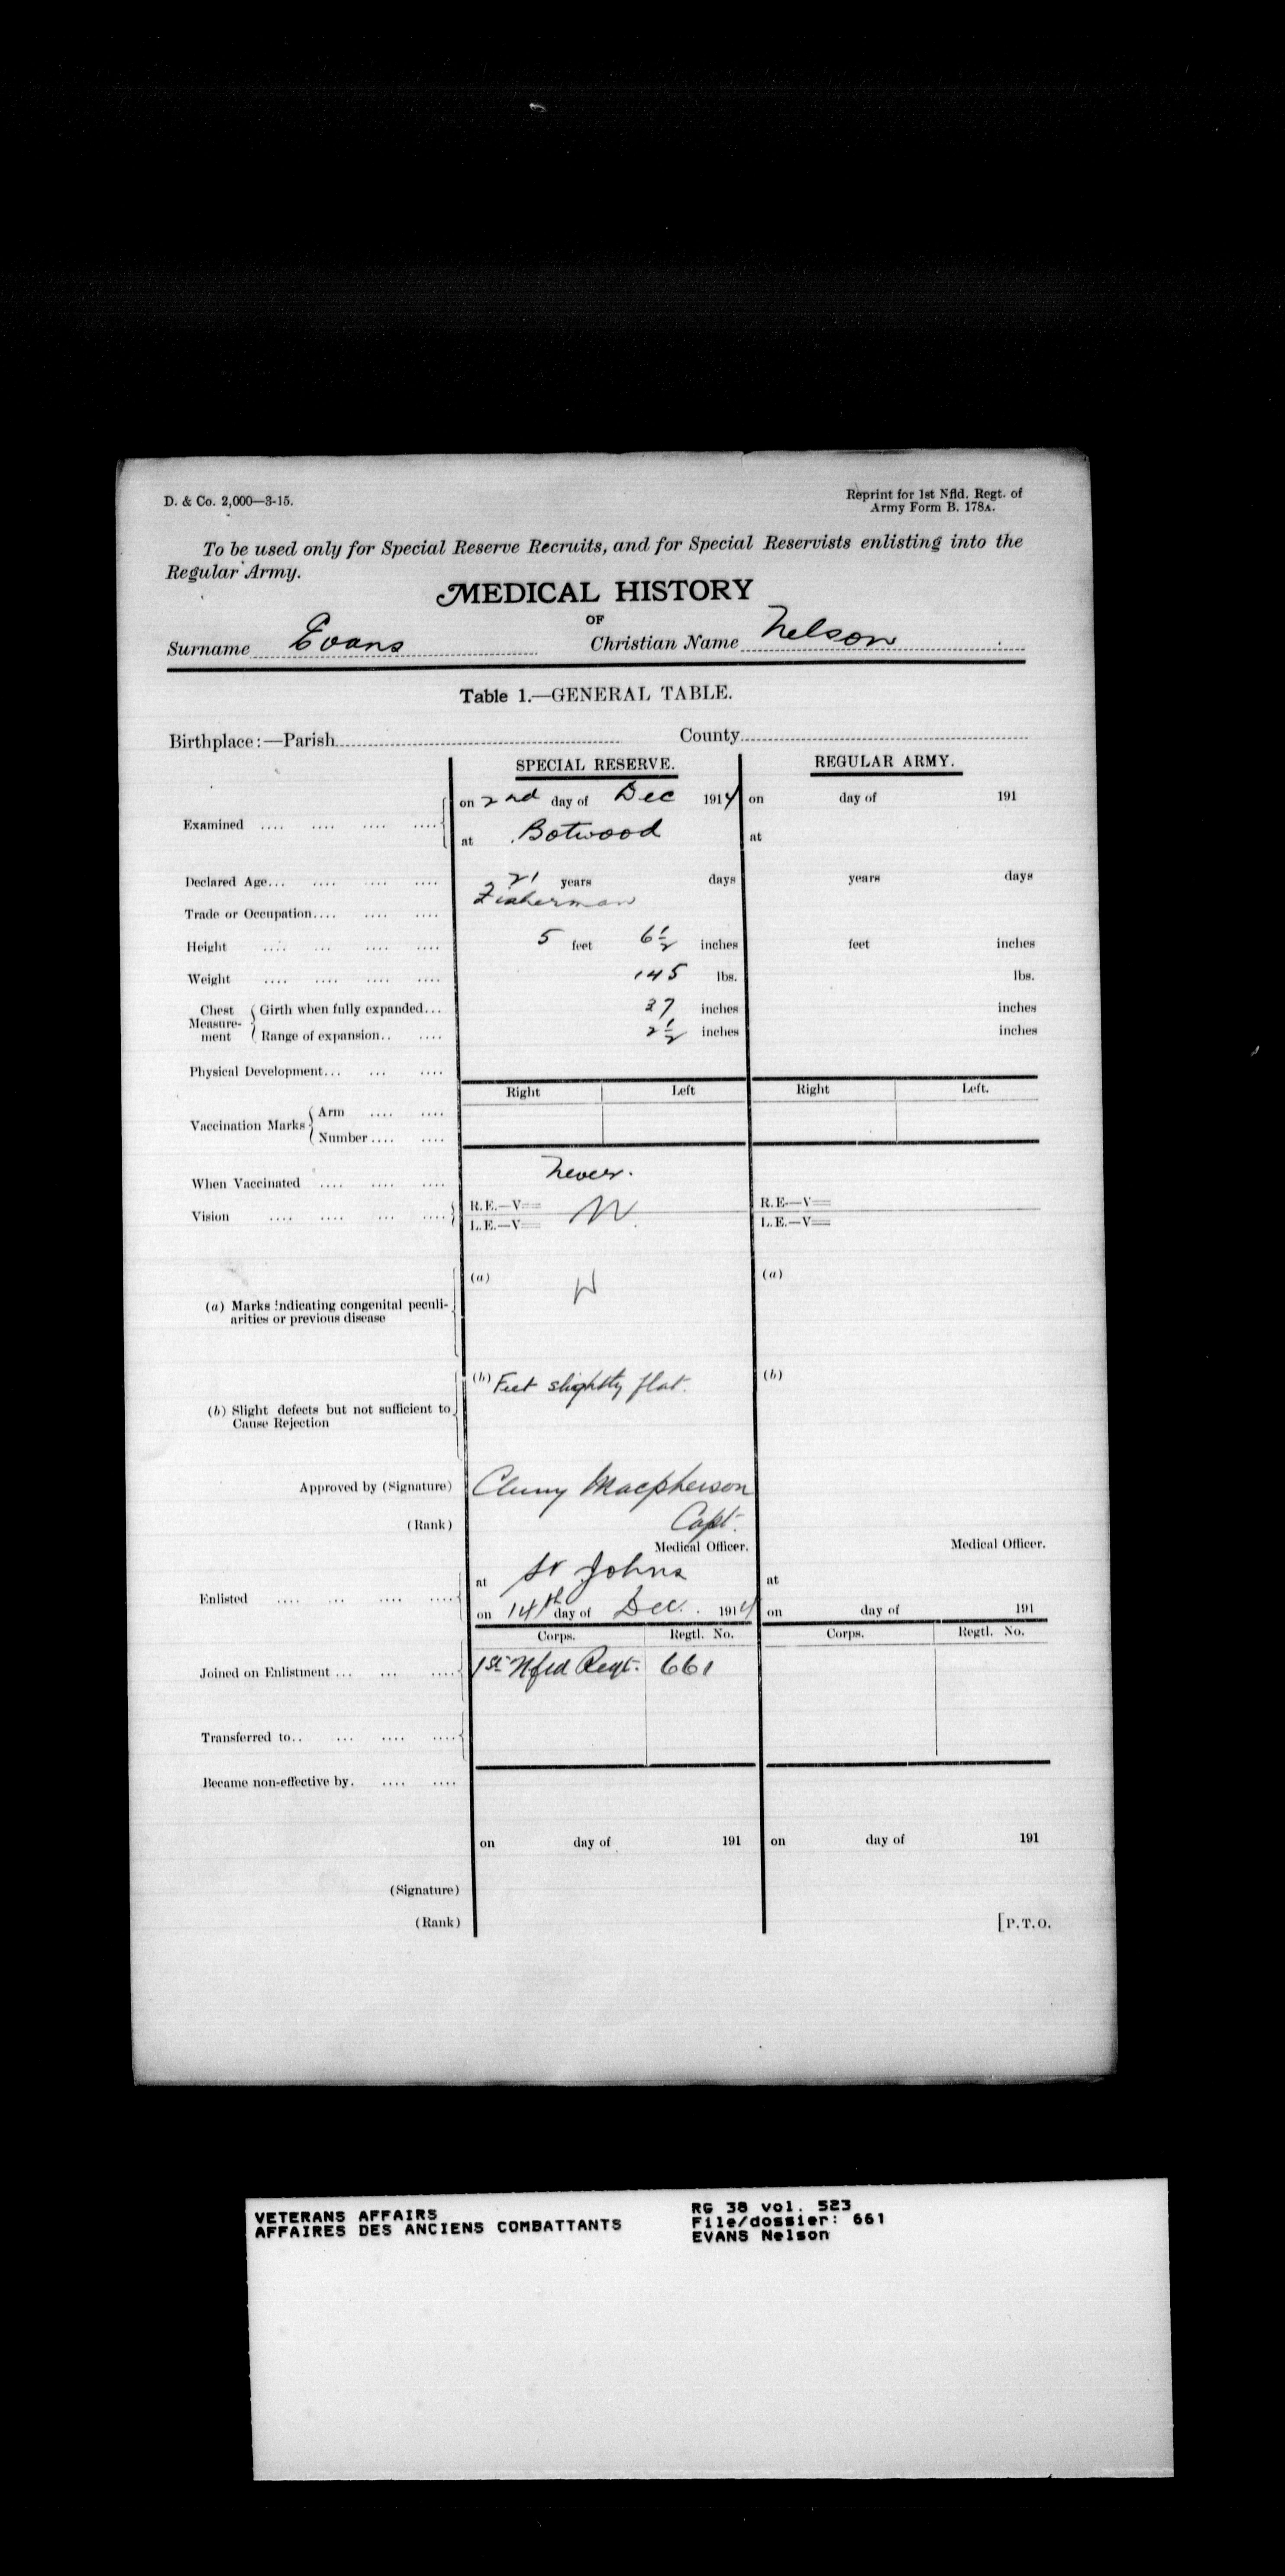 D. & Co. 2,000—3-15.
Reprint for 1st Nfld. Regt. of
Army Form B. 178A.
To be used only for Special Reserve Recruits, and for Special Reservists enlisting into the
Regular Army.
MEDICAL HISTORY
OF
Surname Evans Christian Name Nelson
Table 1.—GENERAL TABLE.
Birthplace:—Parish County
SPECIAL RESERVE. REGULAR ARMY.
on 2nd day of Dec 1914 on day of 191
Examined .... .... .... ....
at Botwood at
Declared Age... .... .... .... 21 years days years days
Trade or Occupation.... .... .... Fisherman
Height .... ... .... .... 5 feet 6½ inches feet inches
Weight .... .... .... .... 145 lbs. lbs.
Chest Measurement Girth when fully expanded... 37 inches inches
Range of expansion.. .... 2½ inches inches
Physical Development... ... ....
Right Left Right Left.
Vaccination Marks Arm .... ....
Number .... ....
When Vaccinated .... .... .... Never.
Vision .... .... ... .... R.E.—V= N R.E—V=
L.E.—V= L.E.—V=
(a) N (a)
(a) Marks indicating congenital peculi-
arities or previous disease
(b) Feet slightly flat. (b)
(b) Slight defects but not sufficient to
Cause Rejection
Approved by (Signature) Cluny Macpherson
(Rank) Capt.
Medical Officer. Medical Officer.
at St Johns at
Enlisted .... ... .... ....
on 14th day of Dec. 1914 on day of 191
Corps. Regtl. No. Corps. Regtl. No.
Joined on Enlistment ... ... .... 1st Nfld Regt. 661
Transferred to.. ... .... ....
Became non-effective by. .... ....
on day of 191 on day of 191
(Signature)
(Rank)
[P.T.O.
VETERANS AFFAIRS
AFFAIRES DES ANCIENS COMBATTANTS
RG 38 vol. 523
File/dossier: 661
EVANS Nelson